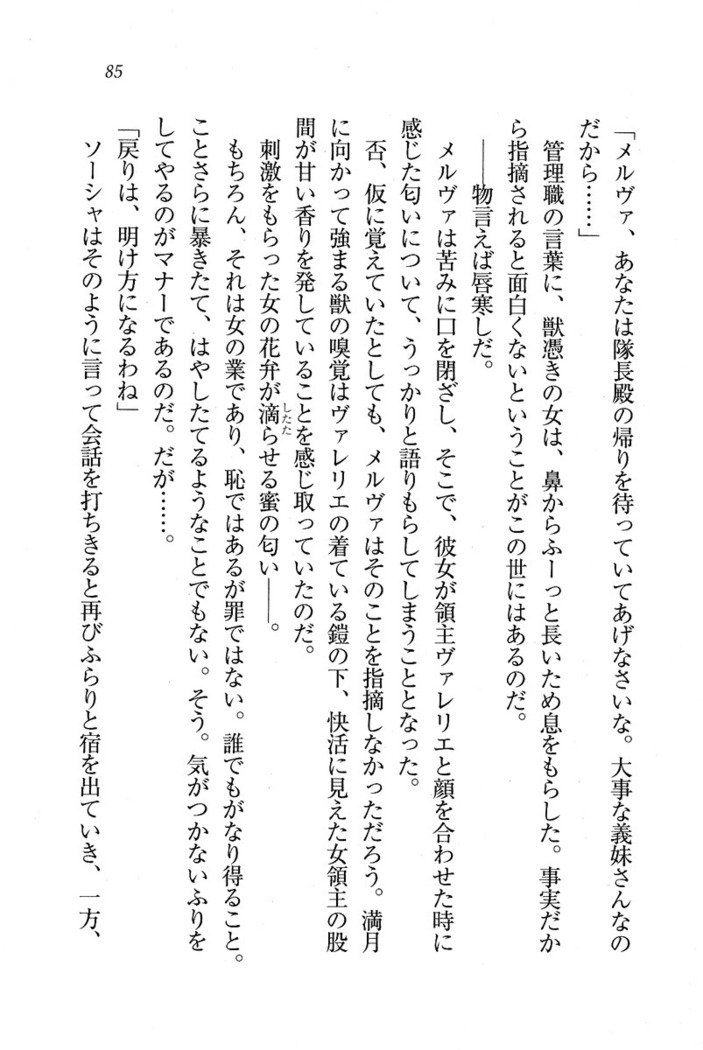 85
「メルヴァ、あなたは隊長殿の帰りを待っていてあげなさいな。大事な義妹さんなの
だから……」
管理職の言葉に、獣憑きの女は、鼻からふーっと長いため息をもらした。事実だか
ら指摘されると面白くないということがこの世にはあるのだ。
――物言えば唇寒しだ。
メルヴァは苦みに口を閉ざし、そこで、彼女が領主ヴァレリエと顔を合わせた時に
感じた匂いについて、うっかりと語りもらしてしまうこととなった。
否、仮に覚えていたとしても、メルヴァはそのことを指摘しなかっただろう。満月
に向かって強まる獣の嗅覚はヴァレリエの着ている鎧の下、快活に見えた女領主の股
間が甘い香りを発していることを感じ取っていたのだ。
刺激をもらった女の花弁が滴らせる蜜の匂い――。
したた
もちろん、それは女の業であり、恥ではあるが罪ではない。誰でもがなり得ること。
ことさらに暴きたて、はやしたてるようなことでもない。そう。気がつかないふりを
してやるのがマナーであるのだ。だが……。
「戻りは、明け方になるわね」
ソーシャはそのように言って会話を打ちきると再びふらりと宿を出ていき、一方、